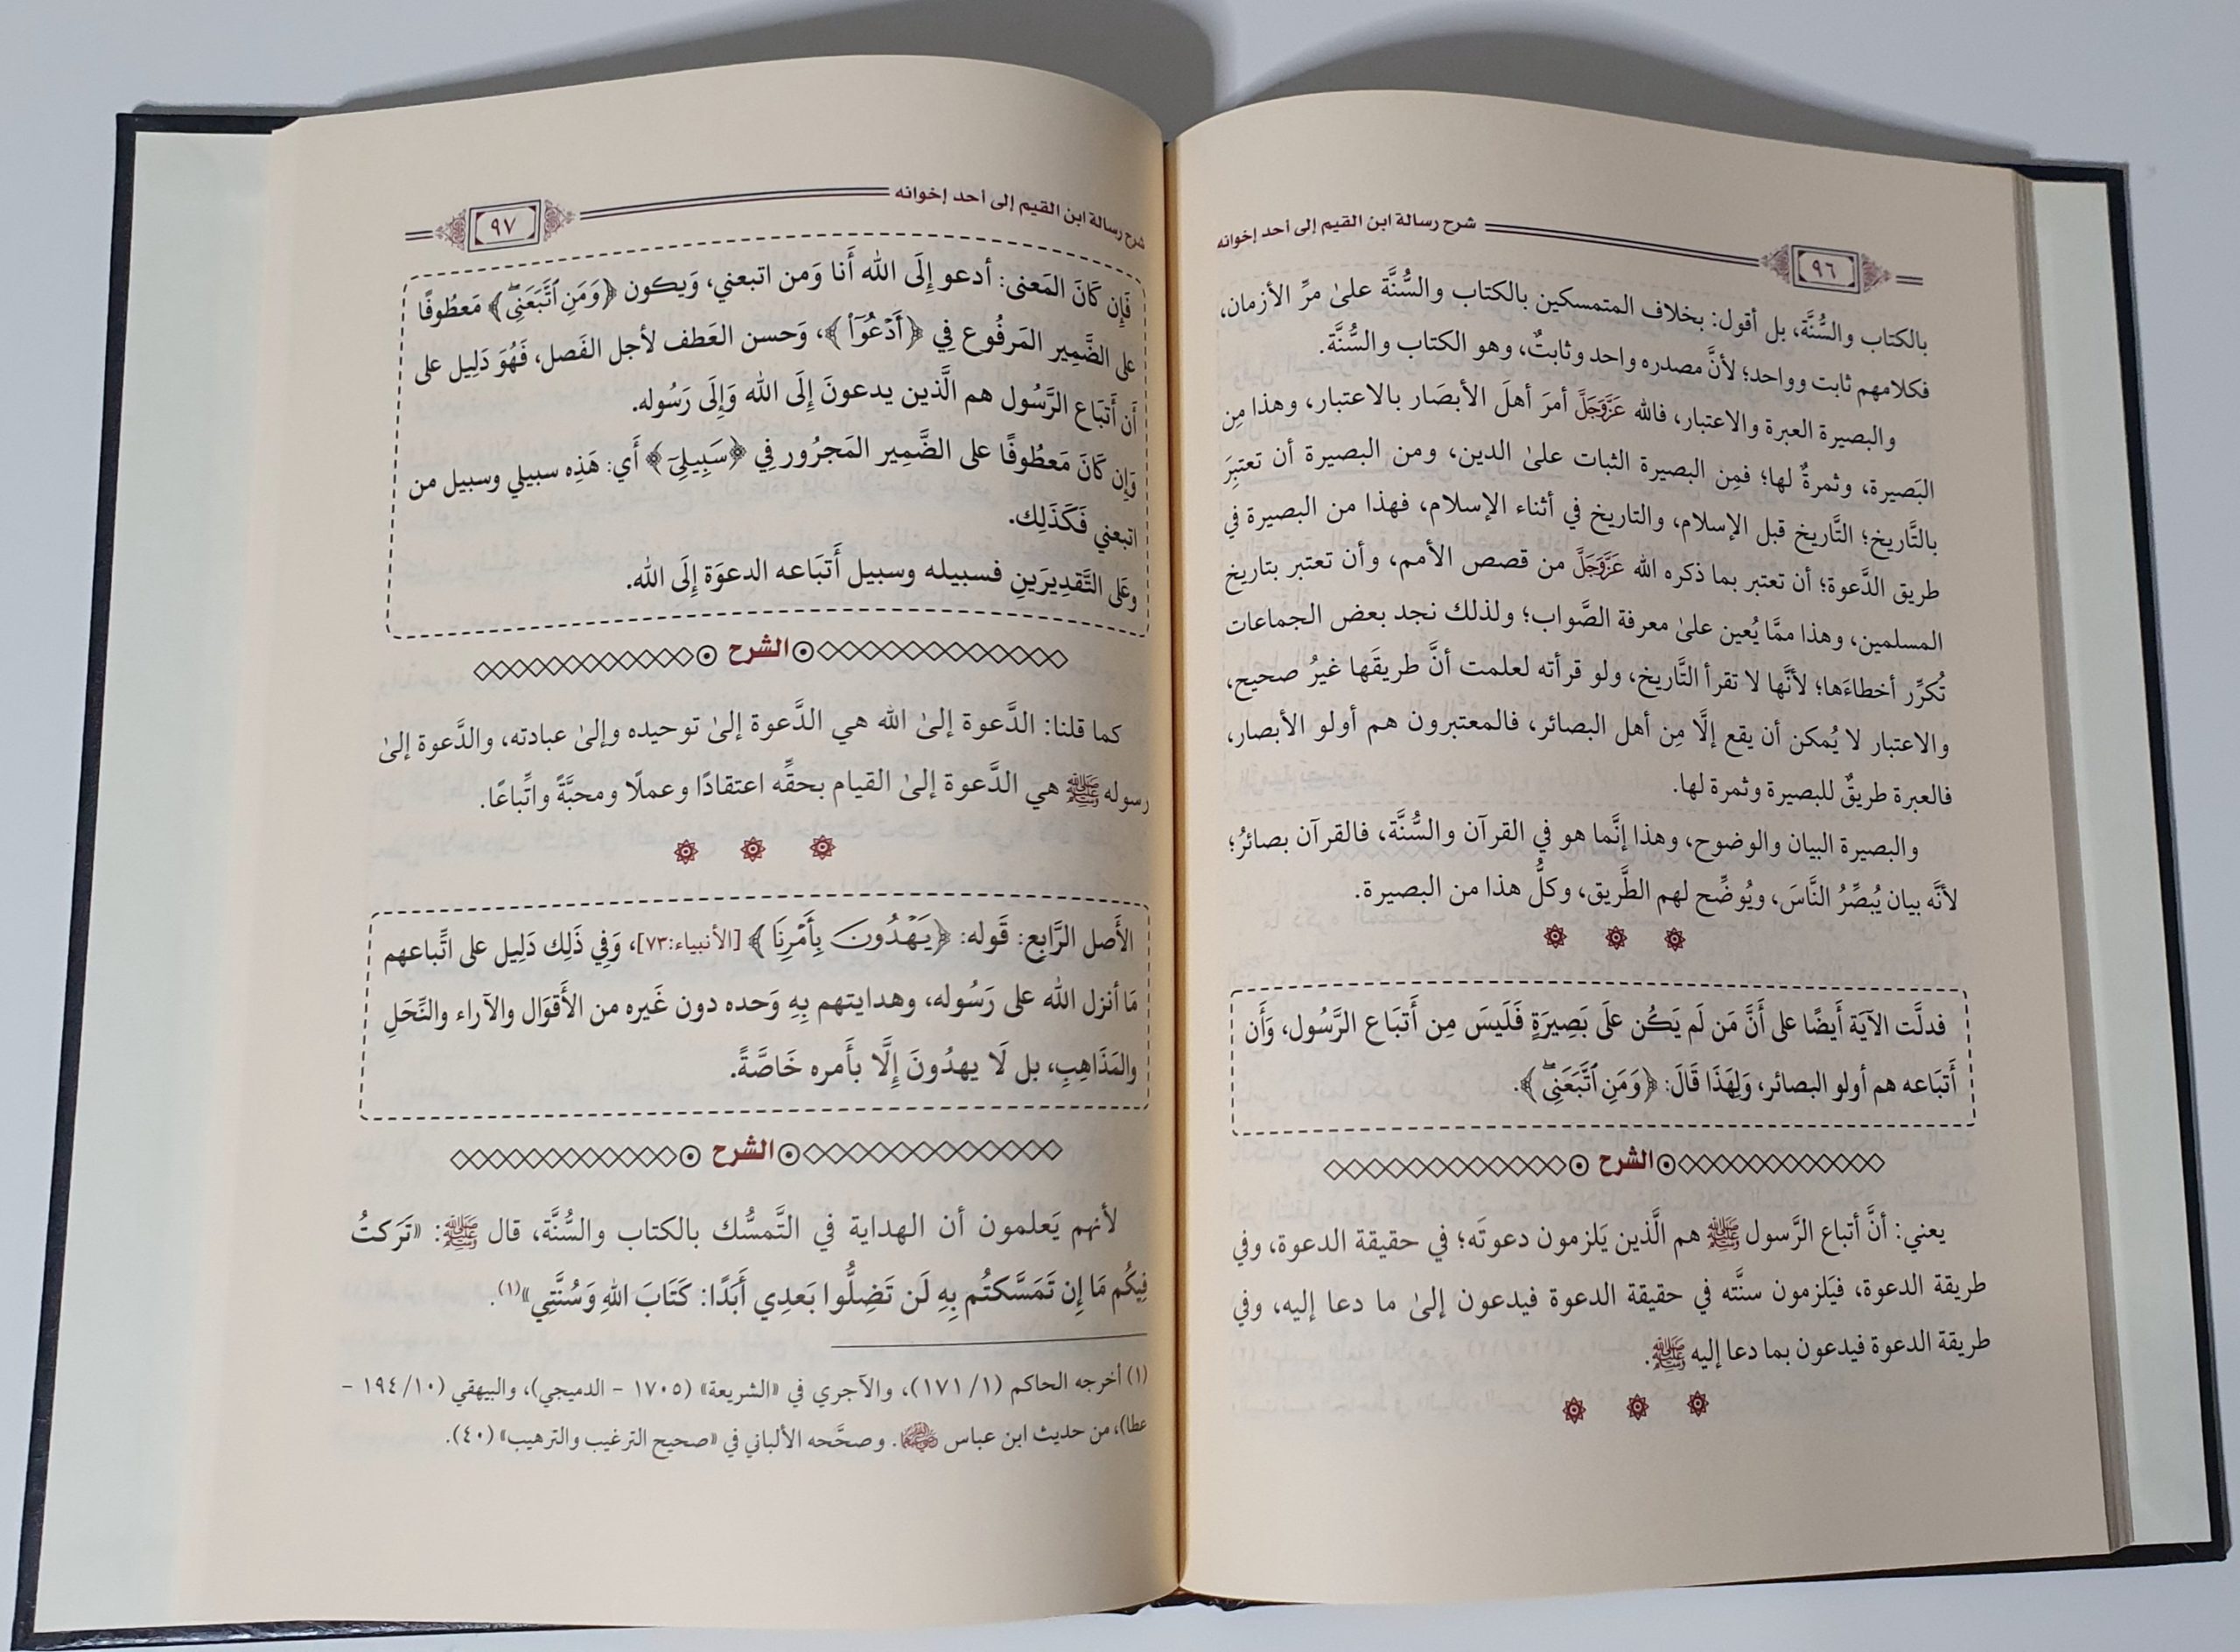 شرح رسالة ابن القيم إلى أحد إخوانه
٩٦
بالكتاب والسُّنَّة، بل أقول: بخلاف المتمسكين بالكتاب والسُّنَّة علىٰ مرِّ الأزمان،
فكلامهم ثابت وواحد؛ لأنَّ مصدره واحد وثابتٌ، وهو الكتاب والسُّنَّة.
والبصيرة العبرة والاعتبار، فالله عَزَّوَجَلَّ أمرَ أهلَ الأبصَار بالاعتبار، وهذا مِن
البَصيرة، وثمرةٌ لها؛ فمِن البصيرة الثبات علىٰ الدين، ومن البصيرة أن تعتبِرَ
بالتَّاريخ؛ التَّاريخ قبل الإسلام، والتاريخ في أثناء الإسلام، فهذا من البصيرة في
طريق الدَّعوة؛ أن تعتبر بما ذكره الله عَزَّوَجَلَّ من قصص الأمم، وأن تعتبر بتاريخ
المسلمين، وهذا ممَّا يُعين علىٰ معرفة الصَّواب؛ ولذلك نجد بعض الجماعات
تُكرِّر أخطاءَها؛ لأنَّها لا تقرأ التَّاريخ، ولو قرأته لعلمت أنَّ طريقَها غيرُ صحيح،
والاعتبار لا يُمكن أن يقع إلَّا مِن أهل البصائر، فالمعتبرون هم أولو الأبصار،
فالعبرة طريقٌ للبصيرة وثمرة لها.
والبصيرة البيان والوضوح، وهذا إنَّما هو في القرآن والسُّنَّة، فالقرآن بصائرُ؛
لأنَّه بيان يُبصِّرُ النَّاسَ، ويُوضِّح لهم الطَّريق، وكلُّ هذا من البصيرة.
فدلَّت الآيَة أَيضًا على أَنَّ مَن لَم يَكُن علَى بَصِيرَةٍ فَلَيسَ مِن أَتبَاع الرَّسُول، وَأَن
أَتبَاعه هم أولو البصائر، وَلِهَذَا قَالَ: ﴿وَمَنِ ٱتَّبَعَنِيۖ﴾.
الشرح
يعني: أنَّ أتباع الرَّسول ﷺ هم الَّذين يَلزمون دعوتَه؛ في حقيقة الدعوة، وفي
طريقة الدعوة، فيَلزمون سنَّته في حقيقة الدعوة فيدعون إلىٰ ما دعا إليه، وفي
طريقة الدعوة فيدعون بما دعا إليه ﷺ.
شرح رسالة ابن القيم إلى أحد إخوانه
٩٧
فَإِن كَانَ المَعنى: أدعو إِلَى الله أَنا وَمن اتبعني، وَيكون ﴿وَمَنِ ٱتَّبَعَنِيۖ﴾ مَعطُوفًا
على الضَّمِير المَرفُوع فِي ﴿أَدۡعُوٓاْ﴾، وَحسن العَطف لأجل الفَصل، فَهُوَ دَلِيل على
أَن أَتبَاع الرَّسُول هم الَّذين يدعونَ إِلَى الله وَإِلَى رَسُوله.
وَإِن كَانَ مَعطُوفًا على الضَّمِير المَجرُور فِي ﴿سَبِيلِيٓ﴾ أَي: هَذِه سبيلي وسبيل من
اتبعني فَكَذَلِك.
وعَلى التَّقدِيرَينِ فسبيله وسبيل أَتبَاعه الدعوَة إِلَى الله.
الشرح
كما قلنا: الدَّعوة إلىٰ الله هي الدَّعوة إلىٰ توحيده وإلىٰ عبادته، والدَّعوة إلىٰ
رسوله ﷺ هي الدَّعوة إلىٰ القيام بحقِّه اعتقادًا وعملًا ومحبَّةً واتِّباعًا.
الأَصل الرَّابِع: قَوله: ﴿يَهۡدُونَ بِأَمۡرِنَا﴾ [الأنبياء:٧٣]، وَفِي ذَلِك دَلِيل على اتِّباعهم
مَا أنزل الله على رَسُوله، وهدايتهم بِهِ وَحده دون غَيره من الأَقوَال والآراء والنِّحَلِ
والمَذَاهِبِ، بل لَا يهدُونَ إِلَّا بأَمره خَاصَّةً.
الشرح
لأنهم يَعلمون أن الهداية في التَّمسُّك بالكتاب والسُّنَّة، قال ﷺ: «تَركتُ
فِيكُم مَا إِن تَمَسَّكتُم بِهِ لَن تَضِلُّوا بَعدِي أَبَدًا: كَتَابَ اللهِ وَسُنَّتِي»(١).
(١) أخرجه الحاكم (١/ ١٧١)، والآجري في «الشريعة» (١٧٠٥ - الدميجي)، والبيهقي (١٠/ ١٩٤ -
عطا)، من حديث ابن عباس رضي الله عنهما. وصحَّحه الألباني في «صحيح الترغيب والترهيب» (٤٠).